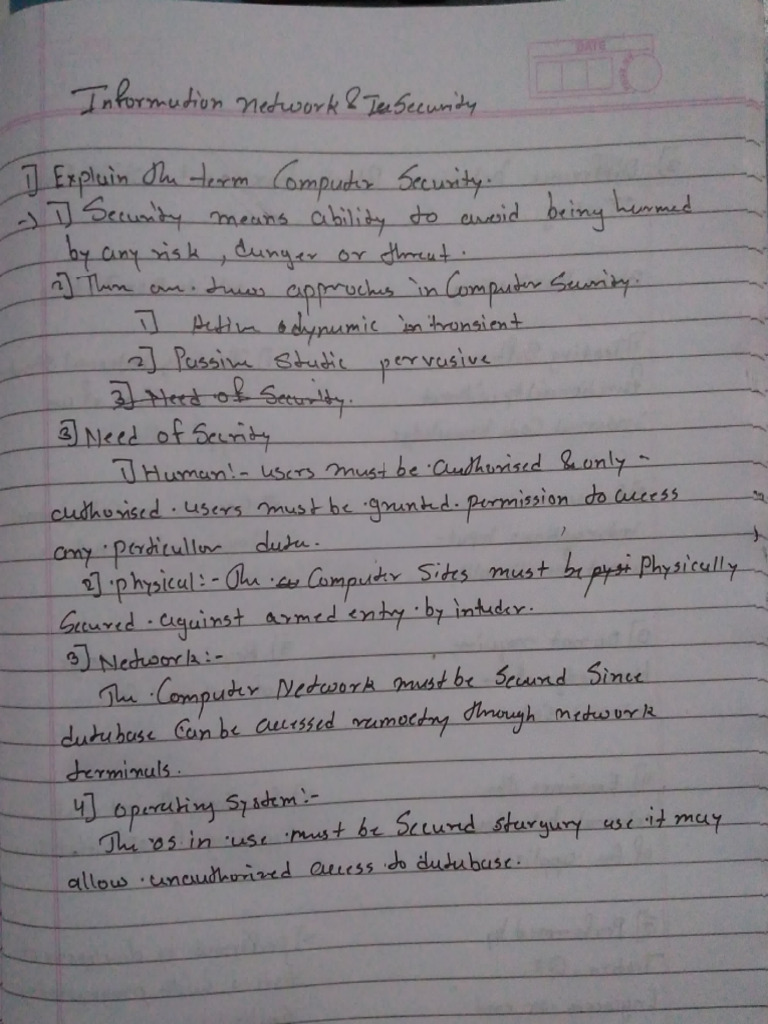 DATE
Information Network & Security
1] Explain the term Computer Security.
→ 1] Security means ability to avoid being harmed
by any risk, danger or threat.
2] There are two approches in Computer Security.
1] Active dynamic in transient
2] Passive Static pervasive
3] Need of Security.
3] Need of Security
1] Human:- users must be authorised & only -
authorised users must be granted permission to access
any perticullar data.
2] physical:- The Computer Sites must be Physically
Secured against armed entry by intuder.
3] Network:-
The Computer Network must be Secured Since
database Can be accessed through network
terminals.
4] Operating System:-
The OS in use must be Secured use it may
allow unauthorized access to database.